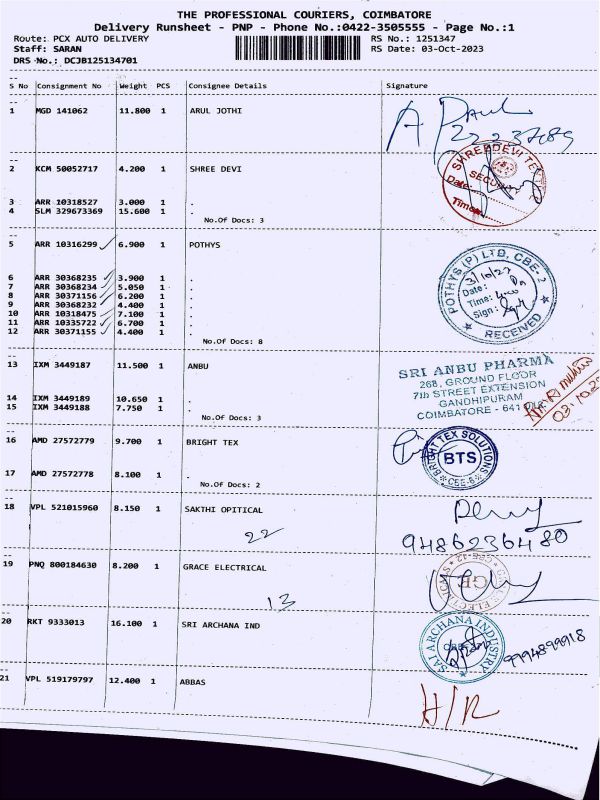 THE PROFESSIONAL COURIERS, COIMBATORE
Delivery Runsheet - PNP - Phone No.:0422-3505555 - Page No.:1
Route: PCX AUTO DELIVERY RS No.: 1251347
Staff: SARAN RS Date: 03-Oct-2023
DRS No.: DCJB125134701
S No Consignment No Weight PCS Consignee Details Signature
1 MGD 141062 11.800 1 ARUL JOTHI
2 KCM 50052717 4.200 1 SHREE DEVI
SHREEDEVI
SECURITY
Date:
Time:
3 ARR 10318527 3.000 1 .
4 SLM 329673369 15.600 1 .
No.Of Docs: 3
5 ARR 10316299 6.900 1 POTHYS
POTHYS (P) LTD, CBE-2
Date:
Time:
Sign:
RECEIVED
6 ARR 30368235 3.900 1 .
7 ARR 30368234 5.050 1 .
8 ARR 30371156 6.200 1 .
9 ARR 30368232 4.400 1 .
10 ARR 10318475 7.100 1 .
11 ARR 10335722 6.700 1 .
12 ARR 30371155 4.400 1 .
No.Of Docs: 8
13 IXM 3449187 11.500 1 ANBU
SRI ANBU PHARMA
268, GROUND FLOOR
7th STREET EXTENSION
GANDHIPURAM
COIMBATORE - 641
14 IXM 3449189 10.650 1 .
15 IXM 3449188 7.750 1 .
No.Of Docs: 3
16 AMD 27572779 9.700 1 BRIGHT TEX
BRIGHT TEX SOLUTIONS
BTS
CBE-6
17 AMD 27572778 8.100 1 .
No.Of Docs: 2
18 VPL 521015960 8.150 1 SAKTHI OPITICAL
22
9486236480
19 PNQ 800184630 8.200 1 GRACE ELECTRICAL
13
20 RKT 9333013 16.100 1 SRI ARCHANA IND
SAI ARCHANA INDUSTRY
9994899918
21 VPL 519179797 12.400 1 ABBAS
H/R